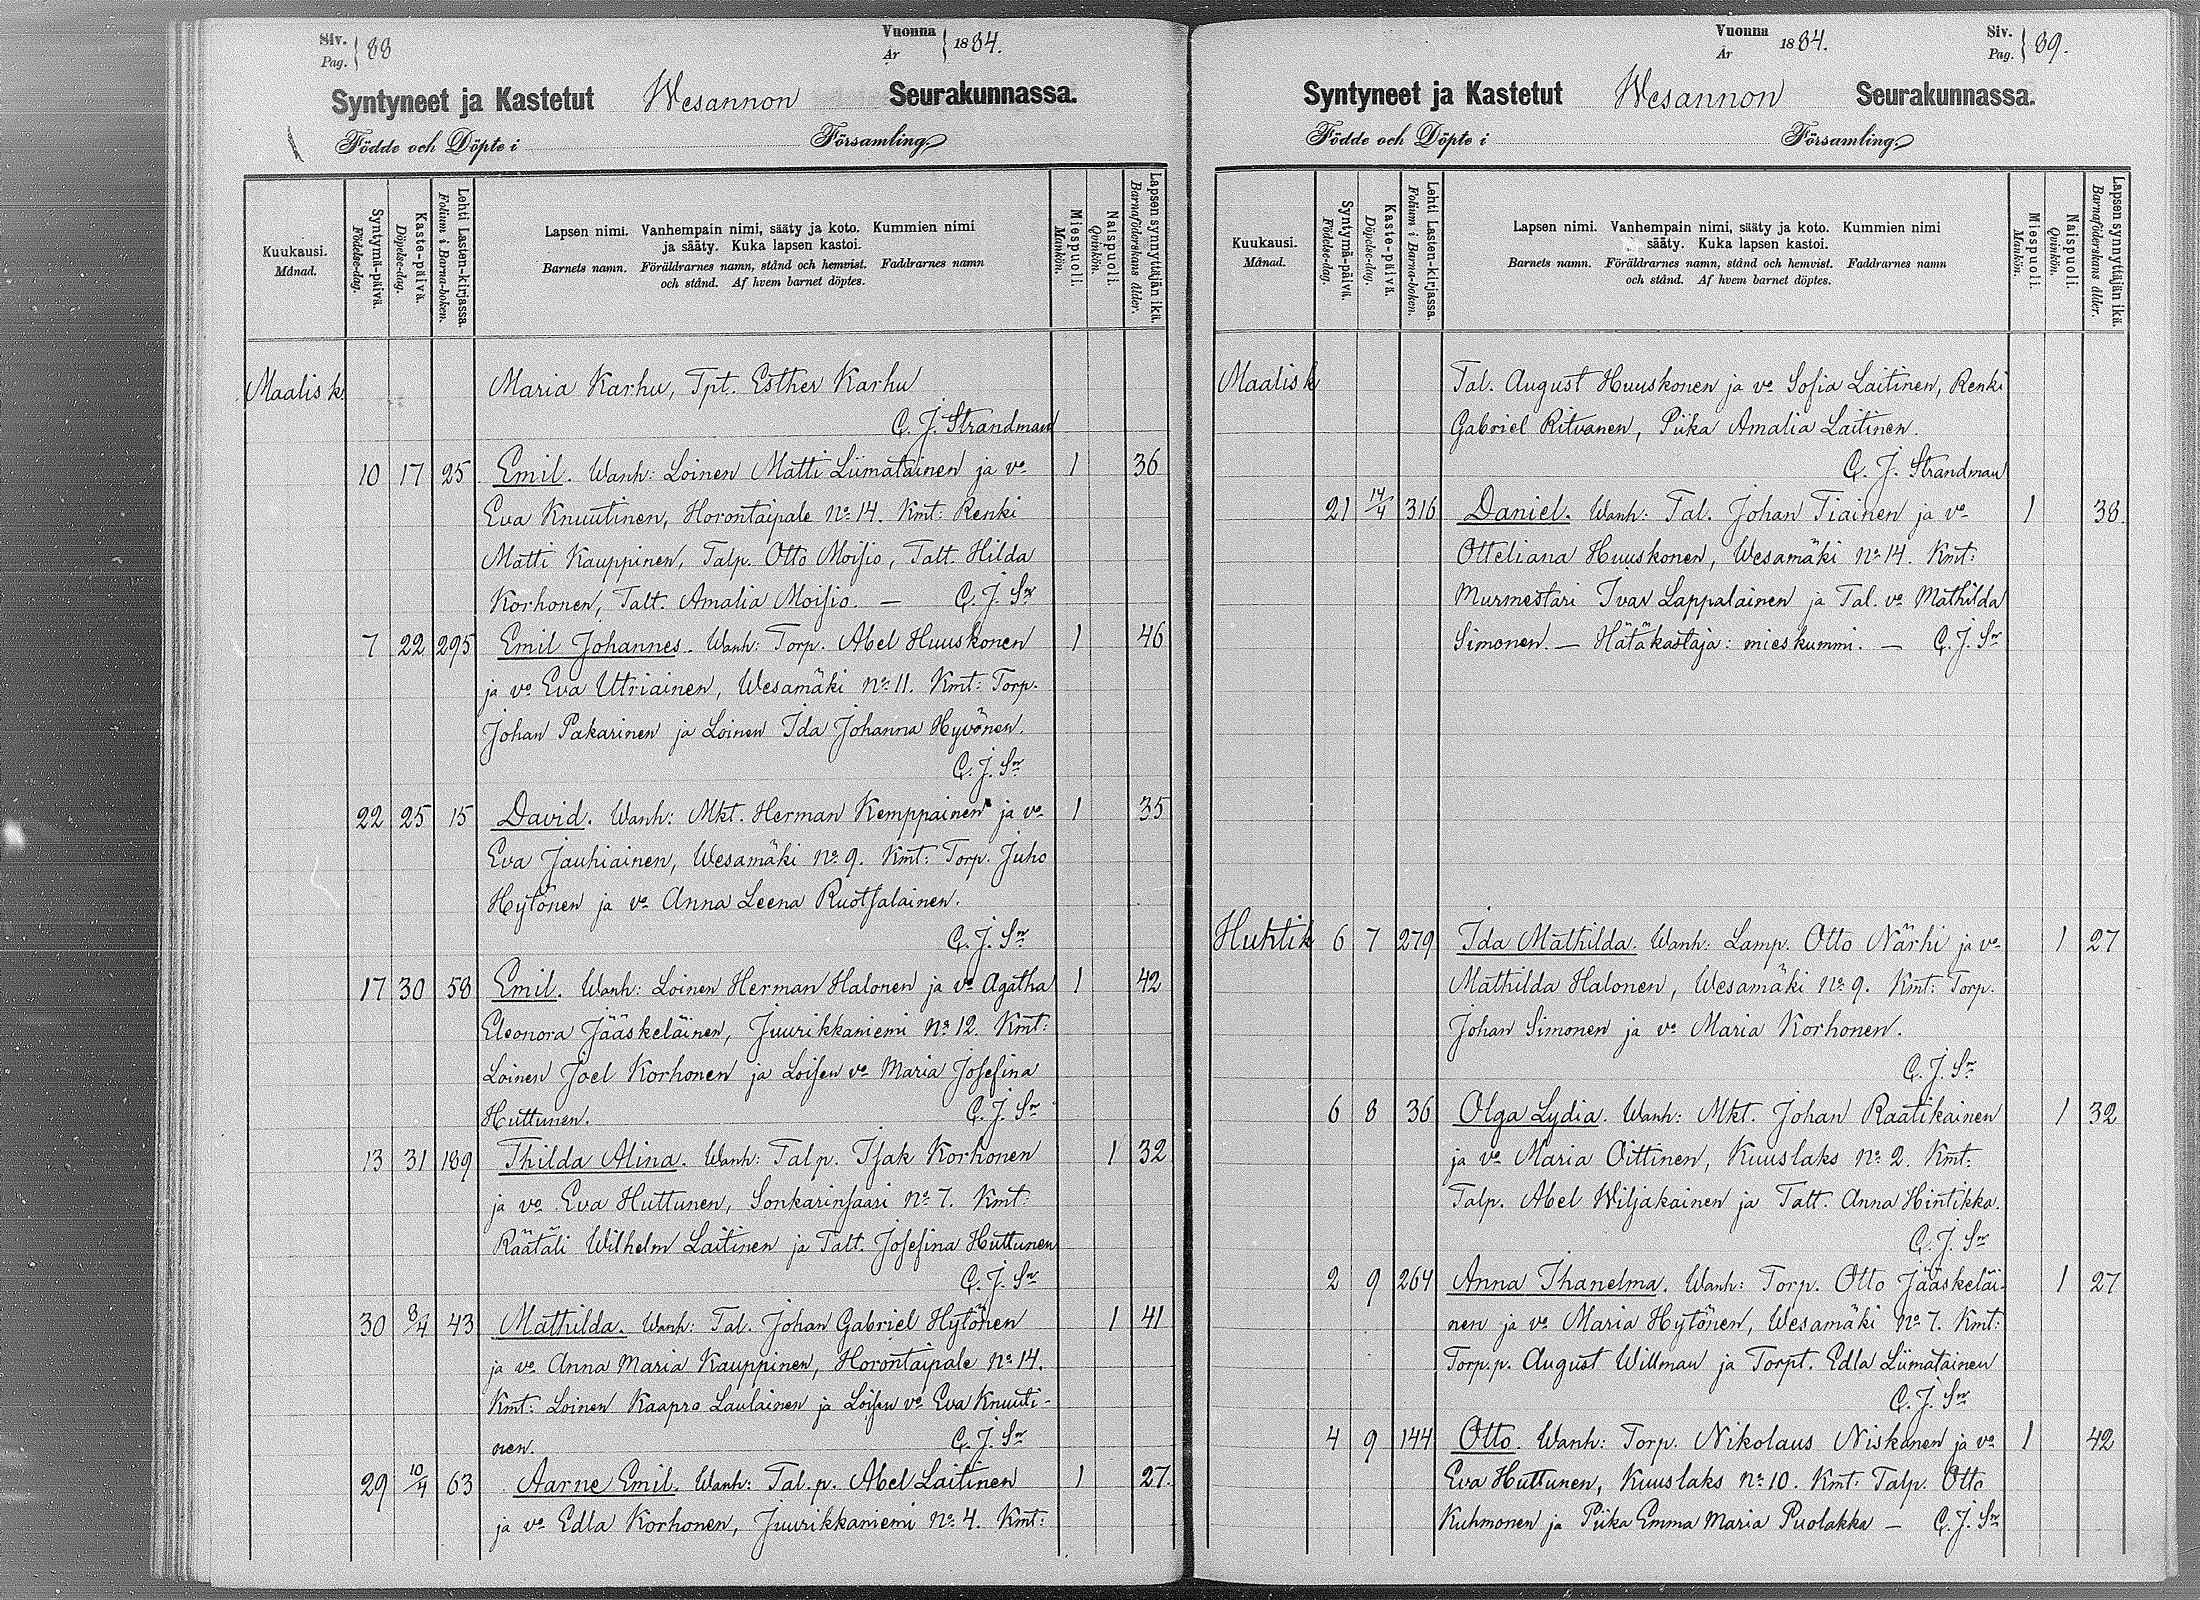 Siv. Pag. } 88
Vuonna År } 1884.
Syntyneet ja Kastetut Wesannon Seurakunnassa.
Födde och Döpte i Församling
Kuukausi. Månad.
Syntymä-päivä. Födelse-dag.
Kaste-päivä. Döpelse-dag.
Lehti Lasten-kirjassa. Folium i Barna-boken.
Lapsen nimi. Vanhempain nimi, sääty ja koto. Kummien nimi
ja sääty. Kuka lapsen kastoi.
Barnets namn. Föräldrarnes namn, stånd och hemvist. Faddrarnes namn
och stånd. Af hvem barnet döptes.
Miespuoli. Mankön.
Naispuoli. Qvinkön.
Lapsen synnyttäjän ikä. Barnaföderskans ålder.
Maalisk Maria Karhu, Tpt. Esther Karhu
C. J. Strandman
10 17 25 Emil. Wanh: Loinen Matti Liimatainen ja vo 1 36
Eva Knuutinen, Horontaipale No 14. Kmt: Renki
Matti Kauppinen, Talp. Otto Moisio, Talt. Hilda
Korhonen, Talt. Amalia Moisio. — C. J. Sn
7 22 295 Emil Johannes. Wanh: Torp. Abel Huuskonen 1 46
ja vo Eva Utriainen, Wesamäki No 11. Kmt: Torp.
Johan Pakarinen ja Loinen Ida Johanna Hyvönen.
C. J. Sn
22 25 15 David. Wanh: Mkt. Herman Kemppainen ja vo 1 35
Eva Jauhiainen, Wesamäki No 9. Kmt: Torp. Juho
Hytönen ja vo Anna Leena Ruotsalainen.
C. J. Sn
17 30 58 Emil. Wanh: Loinen Herman Halonen ja vo Agatha 1 42
Eleonora Jääskeläinen, Juurikkaniemi No 12. Kmt:
Loinen Joel Korhonen ja Loisen vo Maria Josefina
Huttunen. C. J. Sn
13 31 189 Thilda Alina. Wanh: Talp. Isak Korhonen 1 32
ja vo Eva Huttunen, Sonkarinsaari No 7. Kmt:
Räätäli Wilhelm Laitinen ja Talt. Josefina Huttunen
C. J. Sn
30 8/4 43 Mathilda. Wanh: Tal. Johan Gabriel Hytönen 1 41
ja vo Anna Maria Kauppinen, Horontaipale No 14.
Kmt: Loinen Kaapro Laulainen ja Loisen vo Eva Knuuti-
nen. C. J. Sn
29 10/4 63 Aarne Emil. Wanh: Tal.p. Abel Laitinen 1 27.
ja vo Edla Korhonen, Juurikkaniemi No 4. Kmt:
Vuonna År 1884.
Siv. Pag. } 89.
Syntyneet ja Kastetut Wesannon Seurakunnassa.
Födde och Döpte i Församling.
Kuukausi. Månad.
Syntymä-päivä. Födelse-dag.
Kaste-päivä. Döpelse-dag.
Lehti Lasten-kirjassa. Folium i Barna-boken.
Lapsen nimi. Vanhempain nimi, sääty ja koto. Kummien nimi
ja sääty. Kuka lapsen kastoi.
Barnets namn. Föräldrarnes namn, stånd och hemvist. Faddrarnes namn
och stånd. Af hvem barnet döptes.
Miespuoli. Mankön.
Naispuoli. Qvinkön.
Lapsen synnyttäjän ikä. Barnaföderskans ålder.
Maalisk Tal. August Huuskonen ja vo Sofia Laitinen, Renki
Gabriel Ritvanen, Piika Amalia Laitinen.
C. J. Strandman
21 14/4 316 Daniel. Wanh: Tal. Johan Tiainen ja vo 1 38
Otteliana Huuskonen, Wesamäki No 14. Kmt:
Murmestari Ivar Lappalainen ja Tal. vo Mathilda
Simonen. — Hätäkastaja: mieskummi. — C. J. Sn
Huhtik 6 7 279 Ida Mathilda. Wanh: Lamp. Otto Närhi ja vo 1 27
Mathilda Halonen, Wesamäki No 9. Kmt: Torp.
Johan Simonen ja vo Maria Korhonen.
C. J. Sn
6 8 36 Olga Lydia. Wanh: Mkt. Johan Raatikainen 1 32
ja vo Maria Oittinen, Kuuslaks No 2. Kmt:
Talp. Abel Wiljakainen ja Talt. Anna Hintikka.
C. J. Sn
2 9 264 Anna Ihanelma. Wanh: Torp. Otto Jääskeläi- 1 27
nen ja vo Maria Hytönen, Wesamäki No 7. Kmt:
Torp.p. August Willman ja Torpt. Edla Liimatainen
C. J. Sn
4 9 144 Otto. Wanh: Torp. Nikolaus Niskanen ja vo 1 42
Eva Huttunen, Kuuslaks No 10. Kmt: Talp. Otto
Kuhmonen ja Piika Emma Maria Puolakka — C. J. Sn